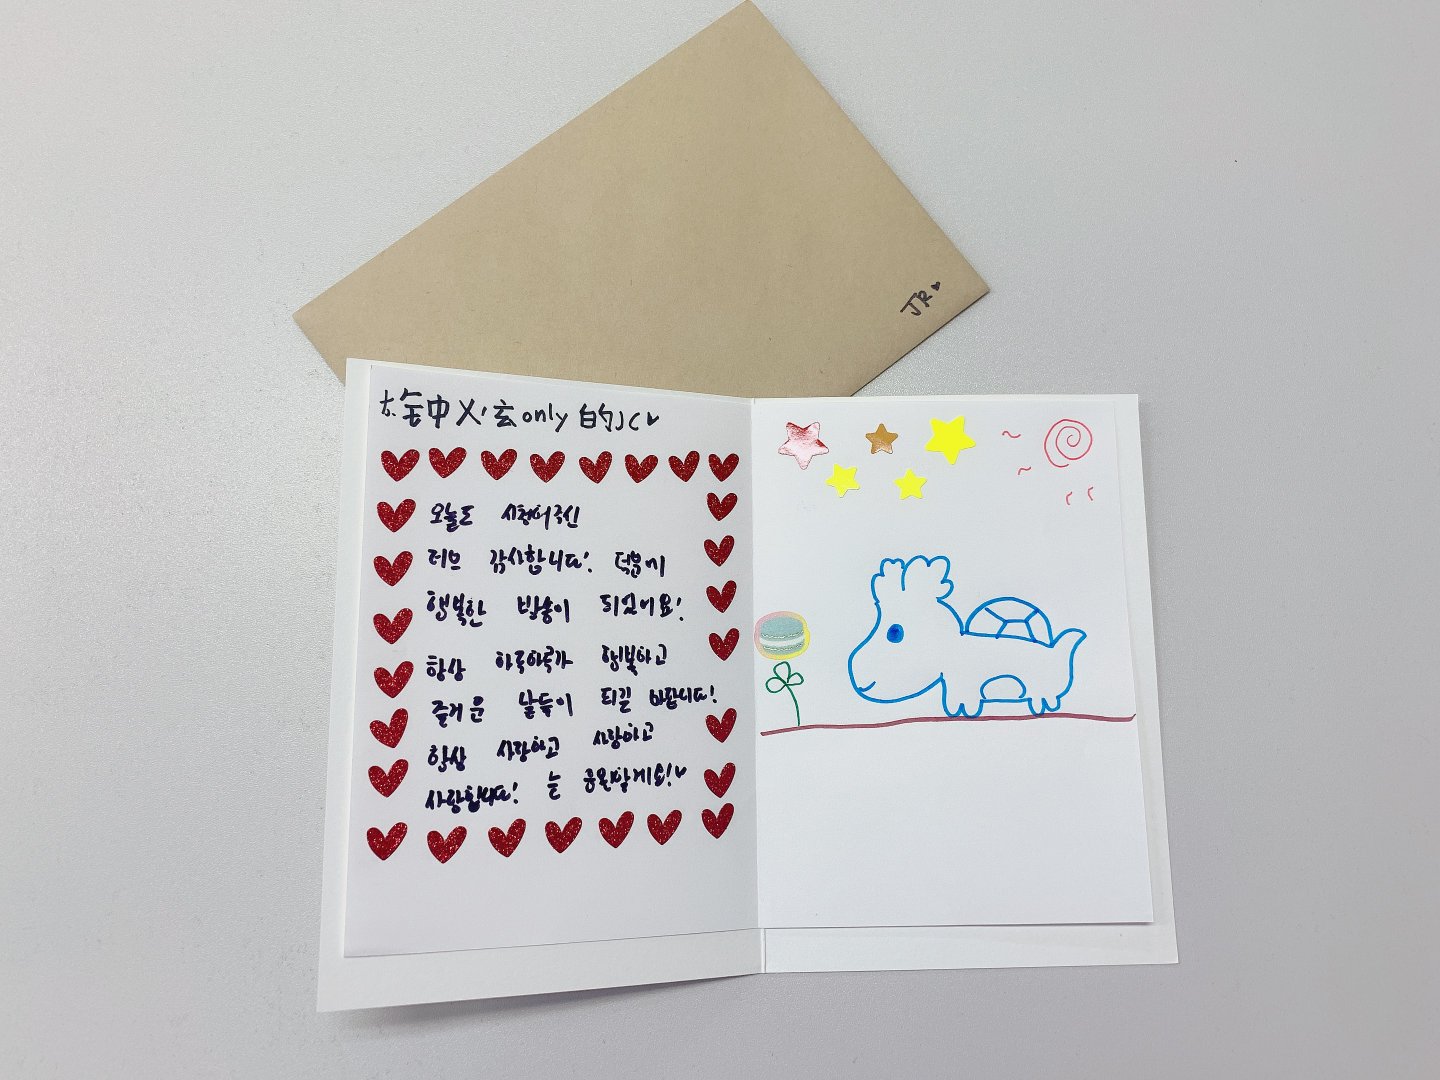 JR
only 的JC
오늘도 시청해주신
러브 감사합니다! 덕분에
행복한 방송이 되었어요!
항상 하루하루가 행복하고
즐거운 날들이 되길 바랍니다!
항상 사랑하고 사랑하고
사랑합니다! 는 응원할게요!